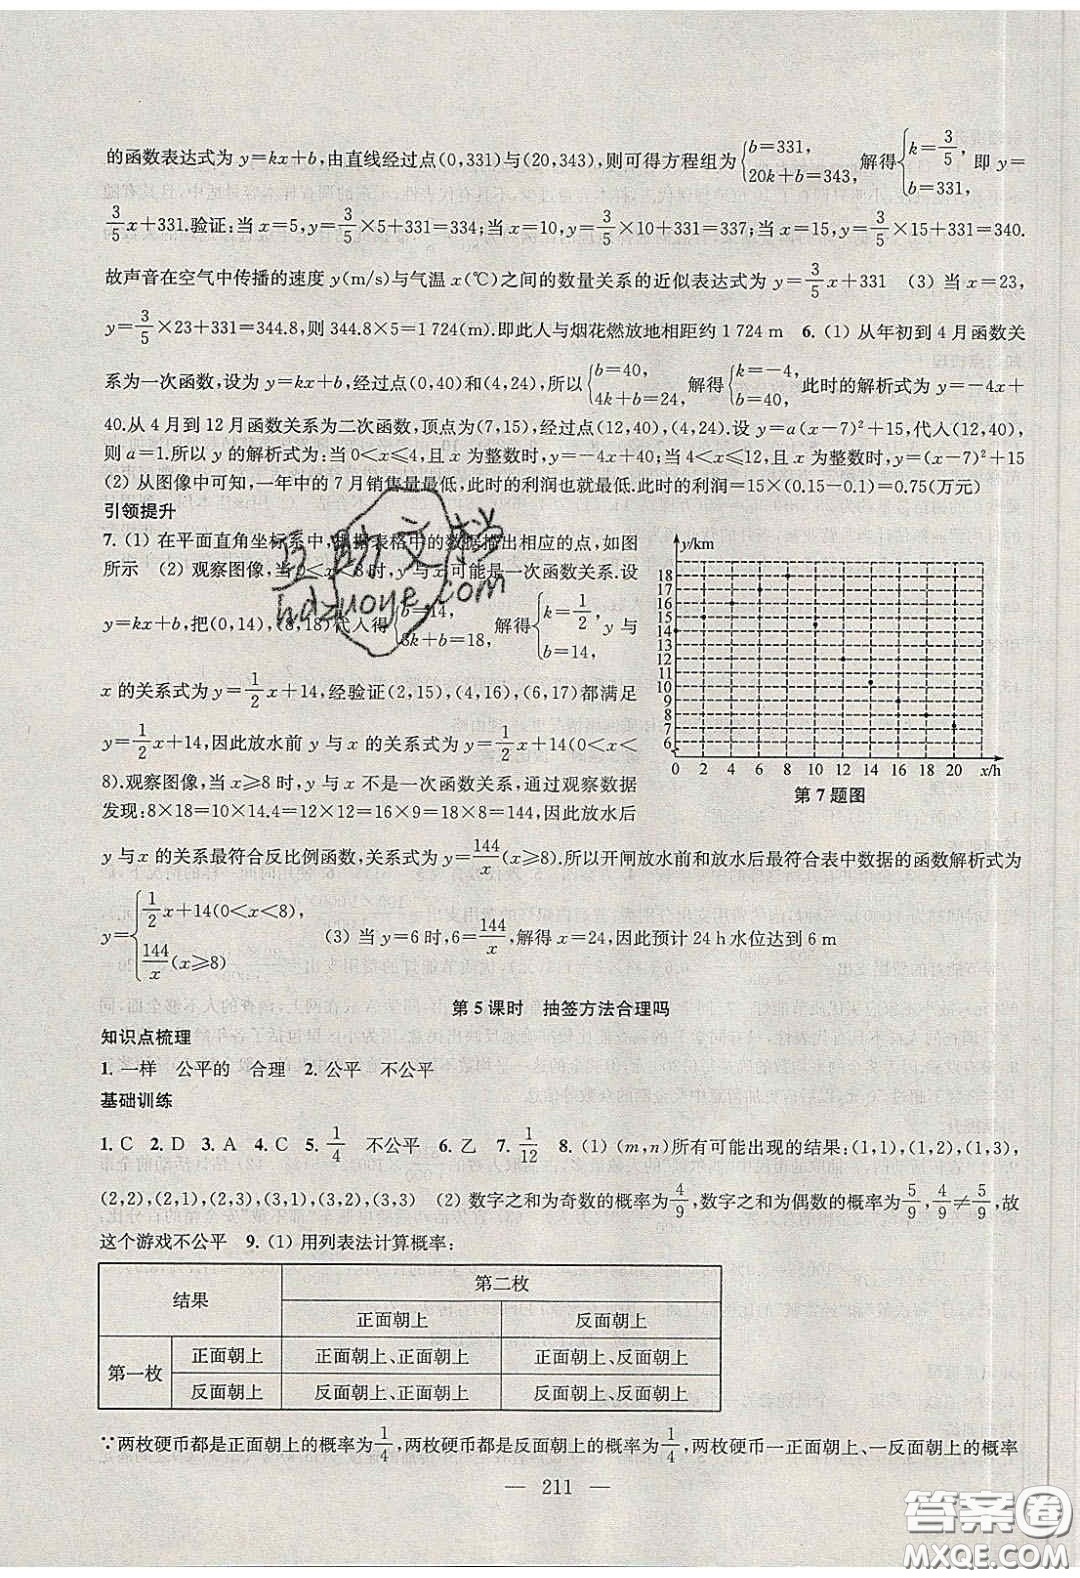 的函数表达式为 y=kx+b,由直线经过点(0,331)与(20,343),则可得方程组为{b=331, 20k+b=343, 解得{k=3/5, b=331, 即 y=
3/5x+331.验证:当 x=5,y=3/5×5+331=334;当 x=10,y=3/5×10+331=337;当 x=15,y=3/5×15+331=340.
故声音在空气中传播的速度 y(m/s)与气温 x(℃)之间的数量关系的近似表达式为 y=3/5x+331 (3) 当 x=23,
y=3/5×23+331=344.8,则 344.8×5=1 724(m).即此人与烟花燃放地相距约 1 724 m 6. (1) 从年初到 4 月函数关
系为一次函数,设为 y=kx+b,经过点(0,40)和(4,24),所以{b=40, 4k+b=24, 解得{k=-4, b=40, 此时的解析式为 y=-4x+
40.从 4 月到 12 月函数关系为二次函数,顶点为(7,15),经过点(12,40),(4,24).设 y=a(x-7)²+15,代入(12,40),
则 a=1.所以 y 的解析式为:当 0<x≤4,且 x 为整数时,y=-4x+40;当 4<x≤12,且 x 为整数时,y=(x-7)²+15
(2) 从图像中可知,一年中的 7 月销售量最低,此时的利润也就最低.此时的利润=15×(0.15-0.1)=0.75(万元)
引领提升
7. (1) 在平面直角坐标系中,根据表格中的数据描出相应的点,如图
所示 (2) 观察图像,当 0<x<8 时,y 与 x 可能是一次函数关系.设
y=kx+b,把(0,14),(8,18)代入得{b=14, 8k+b=18, 解得{k=1/2, b=14, y 与
x 的关系式为 y=1/2x+14,经验证(2,15),(4,16),(6,17)都满足
y=1/2x+14,因此放水前 y 与 x 的关系式为 y=1/2x+14(0<x<
8).观察图像,当 x≥8 时,y 与 x 不是一次函数关系.通过观察数据
发现:8×18=10×14.4=12×12=16×9=18×8=144,因此放水后
y/km
18
17
16
15
14
13
12
11
10
9
8
7
6
0 2 4 6 8 10 12 14 16 18 20 x/h
第 7 题图
y 与 x 的关系最符合反比例函数,关系式为 y=144/x(x≥8).所以开闸放水前和放水后最符合表中数据的函数解析式为
y={1/2x+14(0<x<8), 144/x(x≥8) (3) 当 y=6 时,6=144/x,解得 x=24,因此预计 24 h 水位达到 6 m
第 5 课时 抽签方法合理吗
知识点梳理
1. 一样 公平的 合理 2. 公平 不公平
基础训练
1. C 2. D 3. A 4. C 5. 1/4 不公平 6. 乙 7. 1/12 8. (1) (m,n)所有可能出现的结果:(1,1),(1,2),(1,3),
(2,2),(2,1),(2,3),(3,1),(3,2),(3,3) (2) 数字之和为奇数的概率为4/9,数字之和为偶数的概率为5/9,4/9≠5/9,故
这个游戏不公平 9. (1) 用列表法计算概率:
结果 第二枚
正面朝上 反面朝上
第一枚 正面朝上 正面朝上、正面朝上 正面朝上、反面朝上
反面朝上 反面朝上、正面朝上 反面朝上、反面朝上
∵两枚硬币都是正面朝上的概率为1/4,两枚硬币都是反面朝上的概率为1/4,两枚硬币一正面朝上、一反面朝上的概率
— 211 —
互助文档
hdzuoye.com
答案圈
MXQE.COM